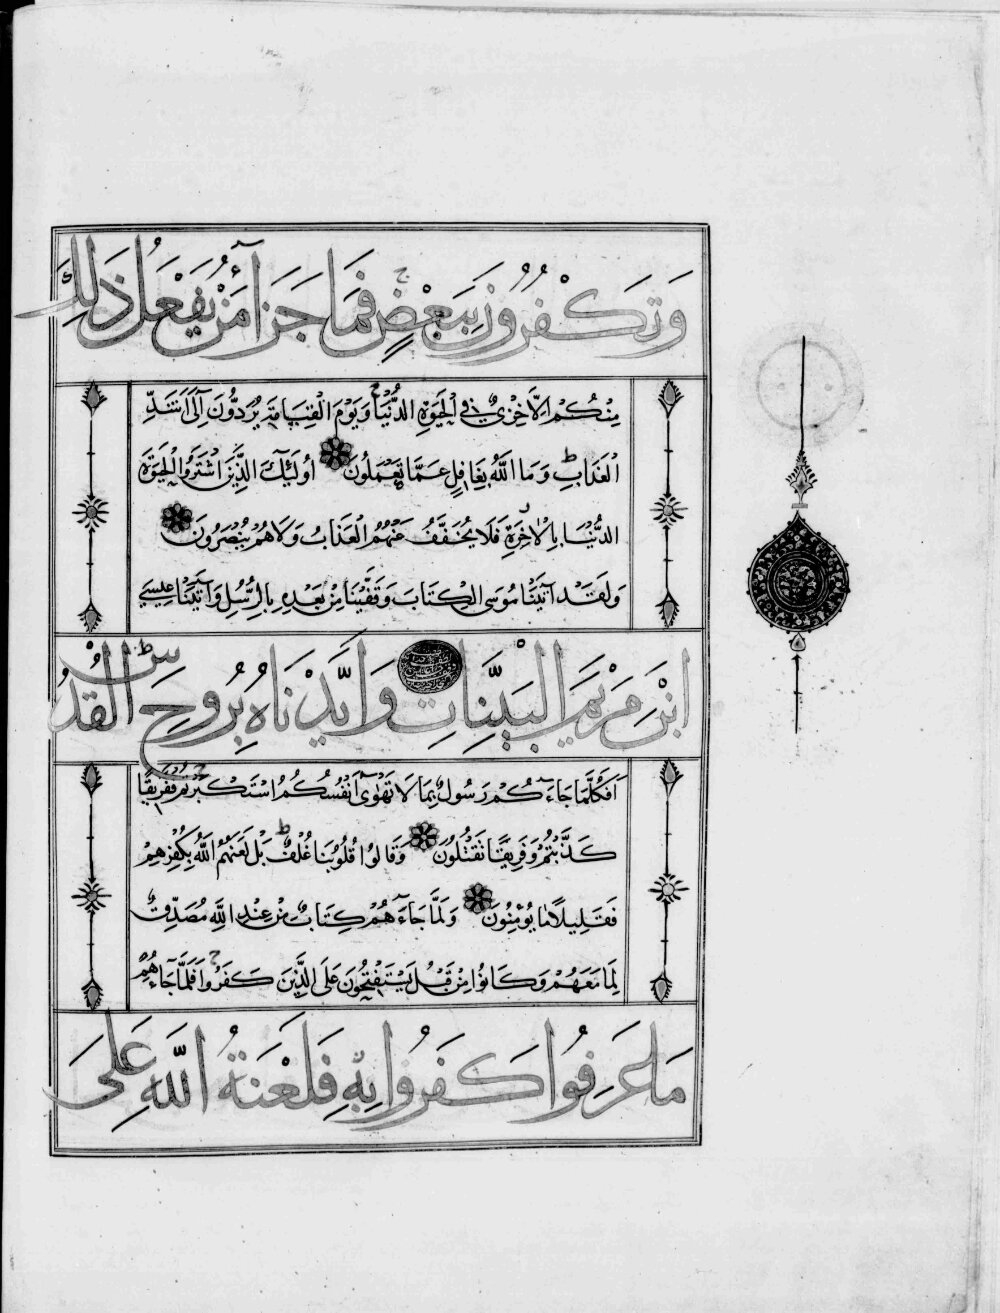 وَتَكْفُرُونَ بِبَعْضٍ فَمَا جَزَآءُ مَنْ يَفْعَلُ ذَلِكَ
مِنْكُمْ اِلَّا خِزْيٌ فِي الْحَيٰوةِ الدُّنْيَا وَيَوْمَ الْقِيَامَةِ يُرَدُّونَ اِلَى اَشَدِّ
الْعَذَابِ وَمَا اللَّهُ بِغَافِلٍ عَمَّا تَعْمَلُونَ اُولَئِكَ الَّذِينَ اشْتَرَوُا الْحَيٰوةَ
الدُّنْيَا بِالْاٰخِرَةِ فَلَا يُخَفَّفُ عَنْهُمُ الْعَذَابُ وَلَا هُمْ يُنْصَرُونَ
وَلَقَدْ آتَيْنَا مُوسَى الْكِتَابَ وَقَفَّيْنَا مِنْ بَعْدِهِ بِالرُّسُلِ وَآتَيْنَا عِيسَى
ابْنَ مَرْيَمَ الْبَيِّنَاتِ وَاَيَّدْنَاهُ بِرُوحِ الْقُدُسِ
اَفَكُلَّمَا جَاءَكُمْ رَسُولٌ بِمَا لَا تَهْوٰى اَنْفُسُكُمُ اسْتَكْبَرْتُمْ فَفَرِيقًا
كَذَّبْتُمْ وَفَرِيقًا تَقْتُلُونَ وَقَالُوا قُلُوبُنَا غُلْفٌ بَلْ لَعَنَهُمُ اللَّهُ بِكُفْرِهِمْ
فَقَلِيلًا مَا يُؤْمِنُونَ وَلَمَّا جَاءَهُمْ كِتَابٌ مِنْ عِنْدِ اللَّهِ مُصَدِّقٌ
لِمَا مَعَهُمْ وَكَانُوا مِنْ قَبْلُ يَسْتَفْتِحُونَ عَلَى الَّذِينَ كَفَرُوا فَلَمَّا جَاءَهُمْ
مَا عَرَفُوا كَفَرُوا بِهِ فَلَعْنَةُ اللَّهِ عَلَى